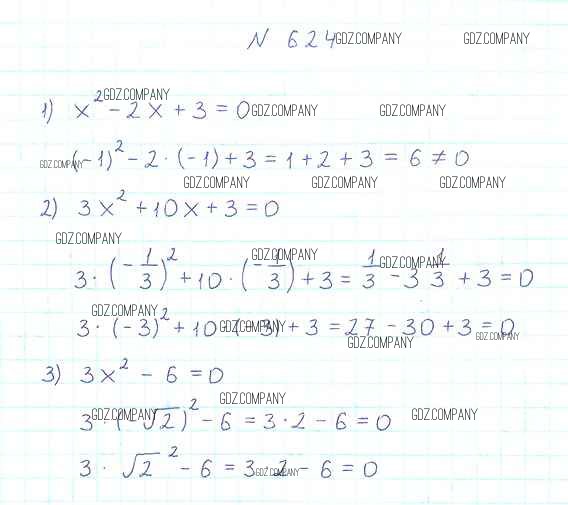 N 624 GDZ.COMPANY GDZ.COMPANY
GDZ.COMPANY
1) x² - 2x + 3 = 0 GDZ.COMPANY GDZ.COMPANY
GDZ.COMPANY (-1)² - 2 · (-1) + 3 = 1 + 2 + 3 = 6 ≠ 0
GDZ.COMPANY GDZ.COMPANY GDZ.COMPANY
2) 3x² + 10x + 3 = 0
GDZ.COMPANY GDZ.COMPANY GDZ.COMPANY
3 · (-1/3)² + 10 · (-1/3) + 3 = 1/3 - 3 1/3 + 3 = 0
GDZ.COMPANY
3 · (-3)² + 10 · (-3) + 3 = 27 - 30 + 3 = 0
GDZ.COMPANY GDZ.COMPANY GDZ.COMPANY
3) 3x² - 6 = 0
GDZ.COMPANY
3 · (-√2)² - 6 = 3 · 2 - 6 = 0
GDZ.COMPANY GDZ.COMPANY
3 · √2² - 6 = 3 · 2 - 6 = 0
GDZ.COMPANY